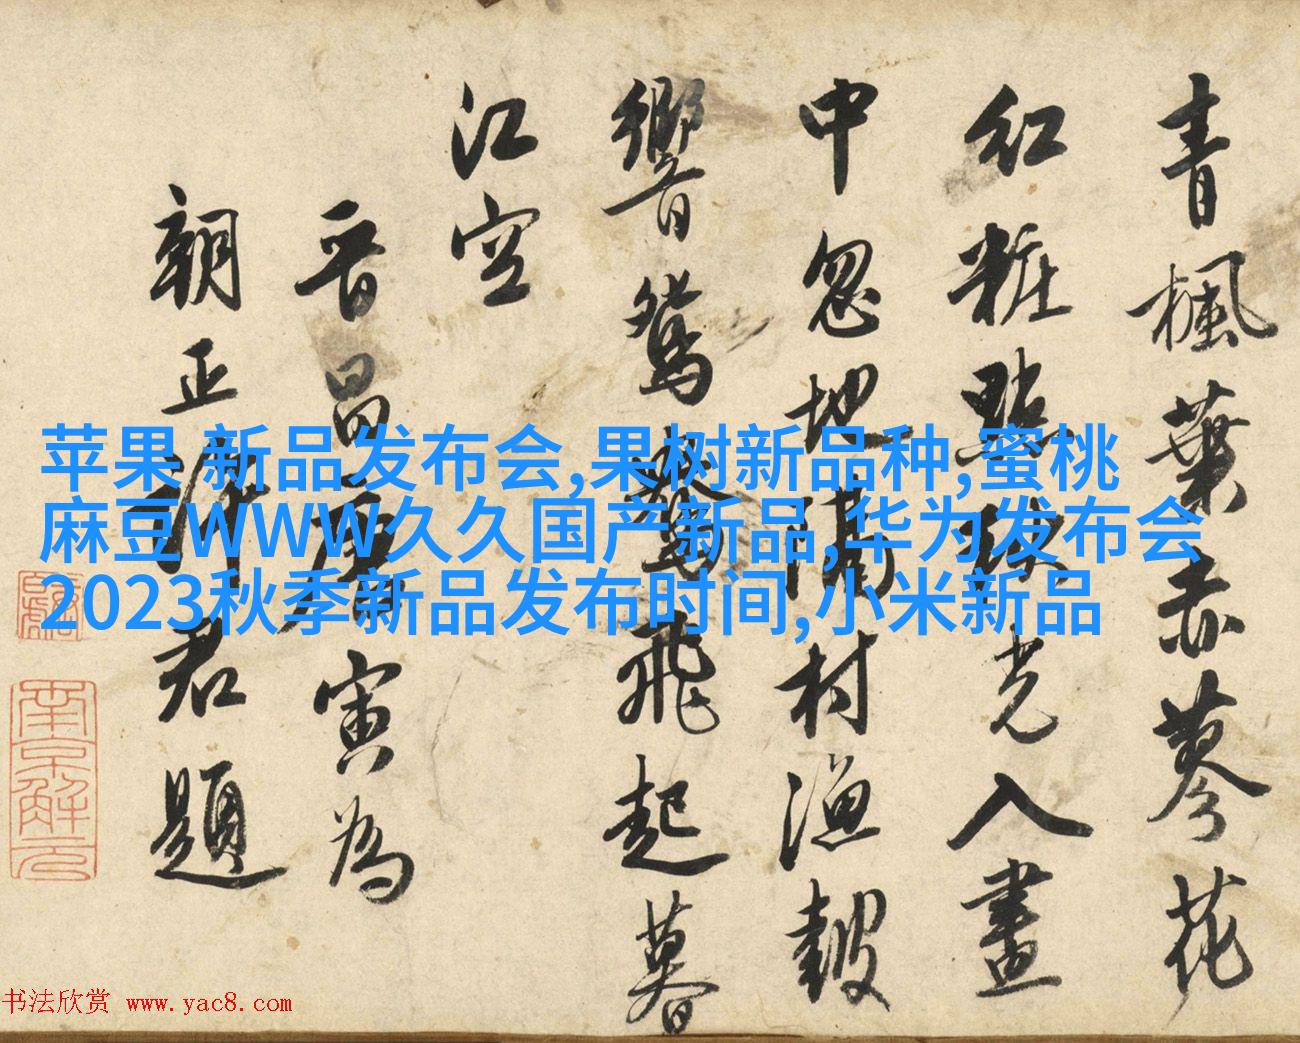 青楓葉赤蓼花
紅粧點秋光入畫
中忽地隔村漁皷
響鴛鴦飛起暮
江空
晉昌唐寅為
朝正沈君題
南京解元
苹果 新品发布会,果树新品种,蜜桃
麻豆WWW久久国产新品,华为发布会
2023秋季新品发布时间,小米新品
书法欣赏 www.yac8.com